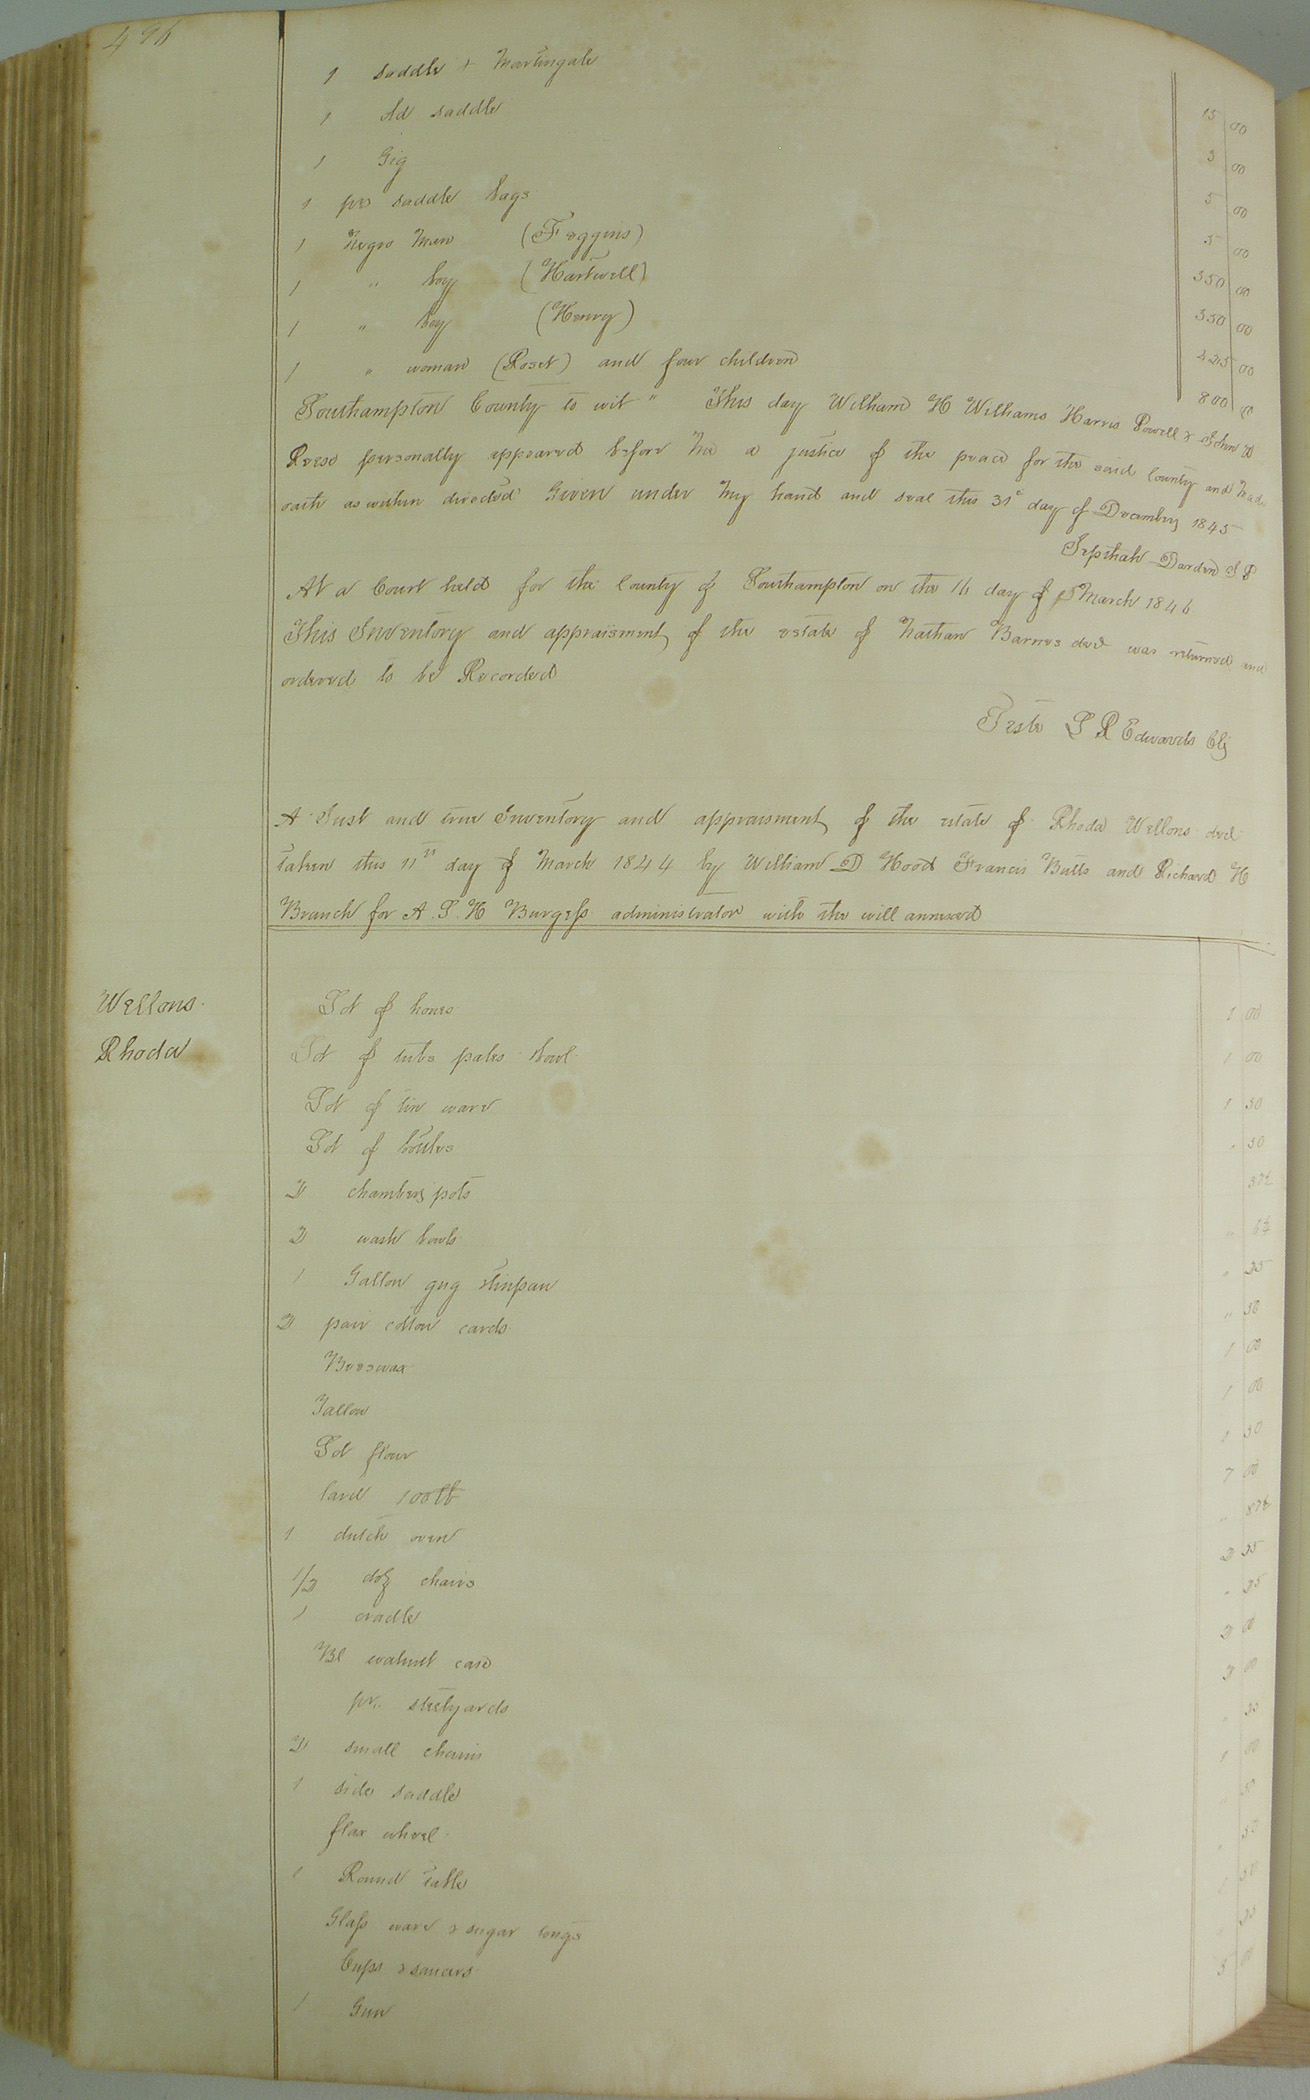 496
1 saddle + Martingale 15 00
1 old saddle 3 00
1 Gig 5 00
1 pr saddle bags 5 00
1 Negro Man (Foggins) 550 00
1 " boy (Hartwell) 550 00
1 " boy (Henry) 425 00
1 " woman (Roset) and four children 800 00
Southampton County to wit " This day William H Williams Harris Powell & John W
Reese personally appeared before me a justice of the peace for the said County and made
oath as within directed Given under my hand and seal this 31st day of December 1845
Jepthah Darden J P
At a Court held for the County of Southampton on the 16 day of March 1846
This Inventory and appraisment of the estate of Nathan Barnes decd was returned and
ordered to be Recorded
Teste L R Edwards Clk
A Just and true Inventory and appraisment of the estate of Rhoda Wellons decd
taken this 11th day of March 1844 by William D Hood Francis Butts and Richard H
Branch for A. S. H Burgess administrator with the will annexed
Wellons
Rhoda
Lot of hones 1 00
Lot of tubs pales bowl 1 00
Lot of tin ware 1 50
Lot of bottles " 50
2 chambers pots 37½
2 wash bowls " 6¼
1 Gallon gug stinpan " 25
2 pair cotton cards " 50
Beeswax 1 00
Tallow 1 00
Lot flour 1 50
lard 100 lb 7 00
1 dutch oven " 87½
1/2 doz chairs 2 25
1 cradle " 25
Bl walnut case 2 00
pr. steelyards 2 00
2 small chairs
1 side saddle 1 00
flax wheel 50
1 Round table 50
Glass ware & sugar tongs 50
Cups & saucers
1 Gun 3 00